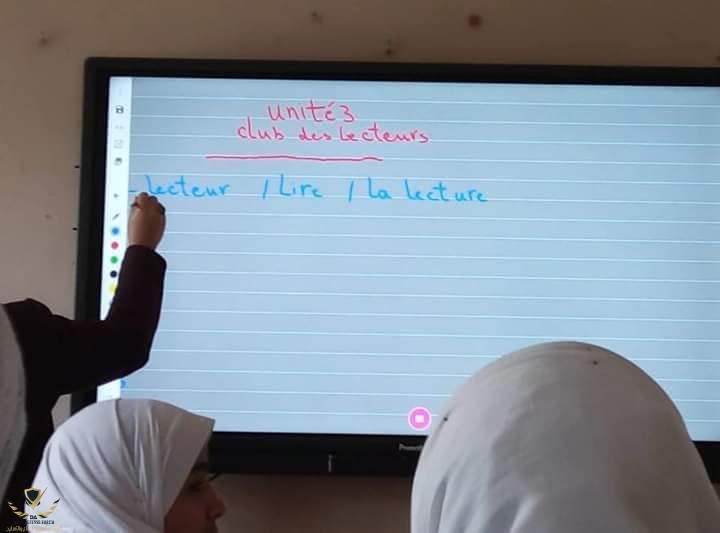 Unité 3
club des lecteurs
- Lecteur / Lire / La lecture